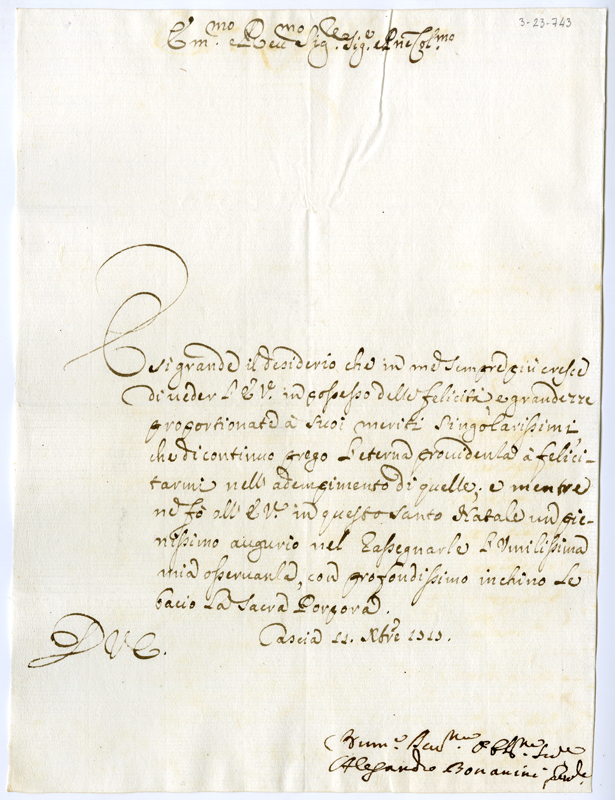 3-23-743
Em.mo e Rev.mo Sig.re Sig.re e Pne Col.mo
È si grande il desiderio che in me sempre più cresce
di ueder l'E.V. in possesso delle felicità e grandezze
proportionate à suoi meriti singolarissimi
che di continuo prego l'eterna prouidenza à felici-
tarmi nell'adempimento di quelle; e mentre
ne fò all'E.V. in questo santo Natale un pie-
nissimo augurio nel rassegnarle l'Vmilissima
mia osseruanza, con profondissimo inchino le
bacio la Sacra Porpora.
Cascia 11. Xbre 1713.
D V E.
Hum.o Deu.mo Obb.mo Se.re
Alegandro Bonanini